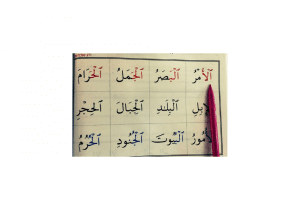 الْأَمْرُ الْبَصَرُ الْجَمَلُ الْحَرَامَ
الْإِبِلِ الْبِلَـٰدِ الْجِبَالَ الْحِجْرِ
الْأُمُورُ الْبُيُوتَ الْجُنُودِ الْحُرُمُ